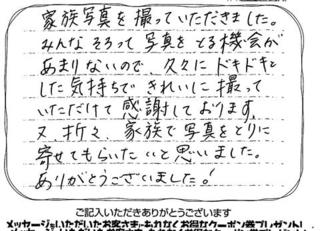 家族写真を撮っていただきました。
みんなそろって写真をとる機会が
あまりないので、久々にドキドキと
した気持ちできれいに撮って
いただけて感謝しております。
又、折々、家族で写真をとりに
寄せてもらいたいと思いました。
ありがとうございました!
ご記入いただきありがとうございます
メッセージをいただいたお客さまにもれなくお得なクーポン券プレゼント!